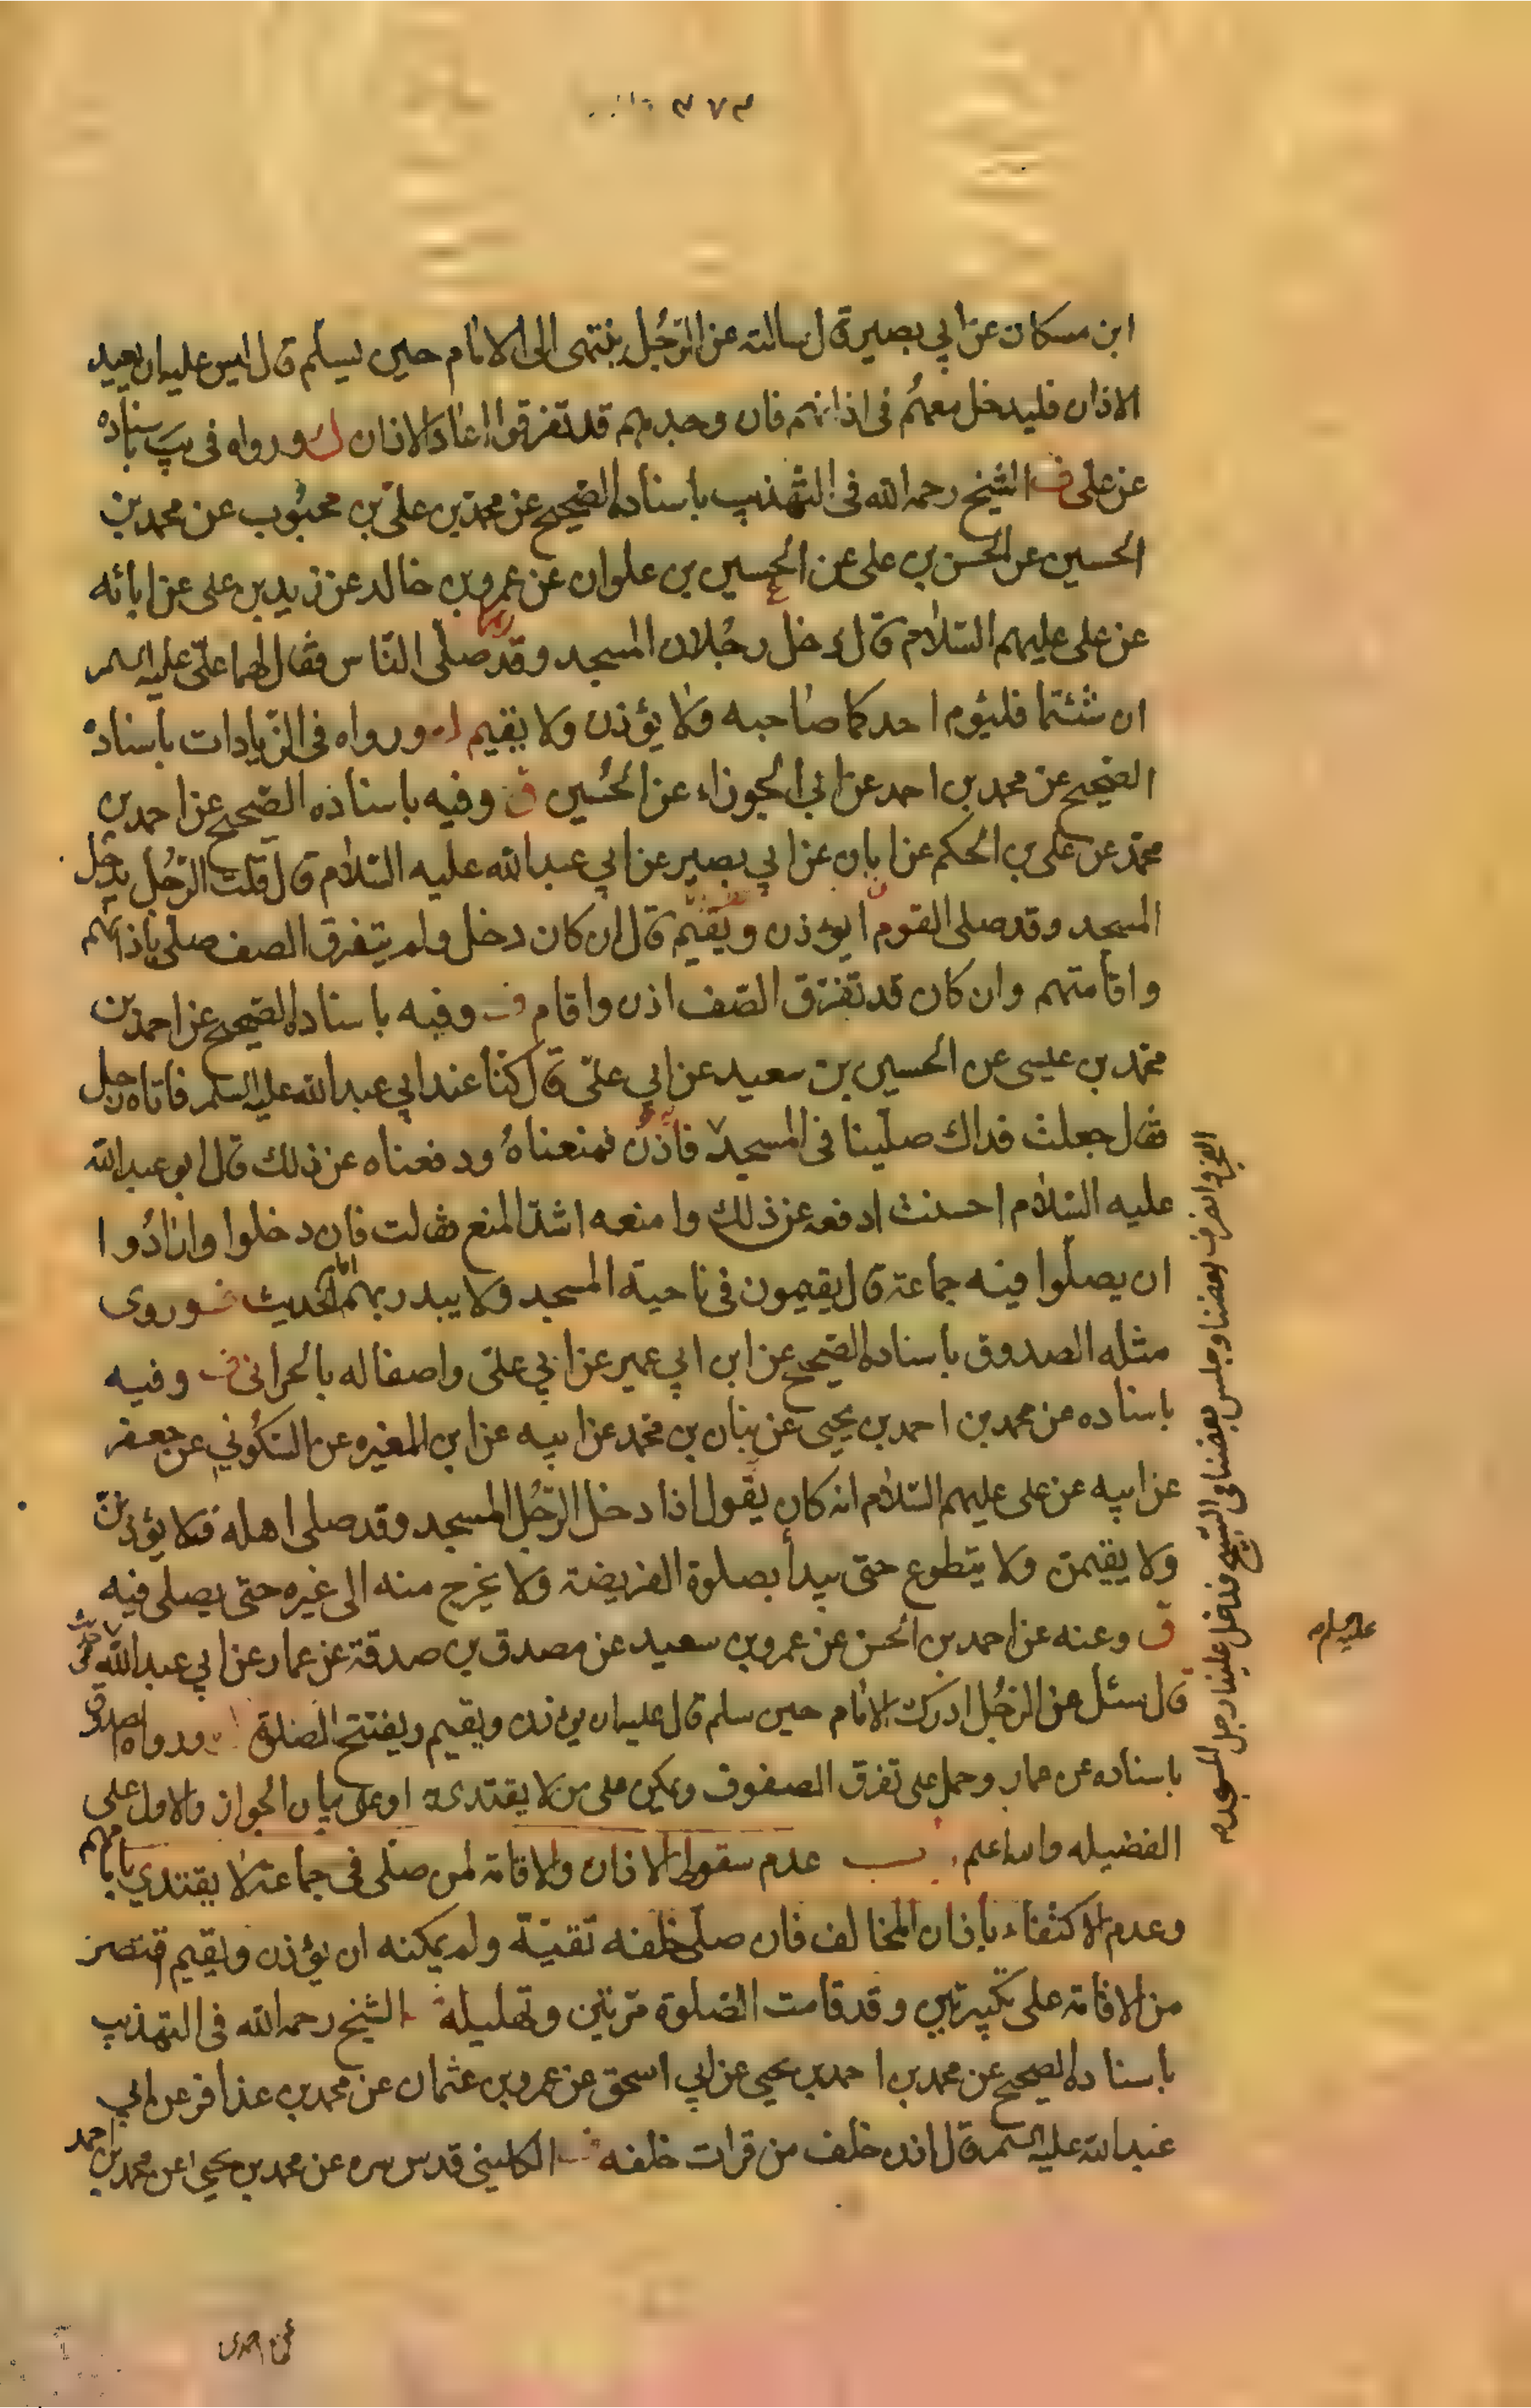 ٣٧٣
ابن مسكان عن ابي بصير قال سالته عن الرجل ينتهى الى الامام حين يسلم قال ليس عليه ان يعيد
الاذان فليدخل معهم فى اذانهم فان وجدهم قد تفرقوا اعاد الاذان ورواه فى يب باسناده
عن على ف الشيخ رحمه الله فى التهذيب باسناده الصحيح عن محمد بن على بن محبوب عن محمد بن
الحسين عن الحسن بن على عن الحسين بن علوان عن عمرو بن خالد عن زيد بن على عن ابائه
عن على عليهم السلام قال دخل رجلان المسجد وقد صلى الناس فقال لهما على عليه السلم
ان شئتما فليؤم احدكما صاحبه ولا يؤذن ولا يقيم ورواه فى الزيادات باسناده
الصحيح عن محمد بن احمد عن ابي الجوزاء عن الحسين ق وفيه باسناده الصحيح عن احمد بن
محمد عن على بن الحكم عن ابان عن ابي بصير عن ابي عبد الله عليه السلام قال قلت الرجل يدخل
المسجد وقد صلى القوم ايؤذن ويقيم قال ان كان دخل ولم يتفرق الصف صلى باذانهم
واقامتهم وان كان قد تفرق الصف اذن واقام ف وفيه باسناده الصحيح عن احمد بن
محمد بن عيسى عن الحسين بن سعيد عن ابي على قال كنا عند ابي عبد الله عليه السلم فاتاه رجل
فقال جعلت فداك صلينا فى المسجد فاذن فمنعناه ودفعناه عن ذلك قال ابو عبد الله
عليه السلام احسنت ادفعه عن ذلك وامنعه اشد المنع فقلت فان دخلوا وارادوا
ان يصلوا فيه جماعة قال يقيمون فى ناحية المسجد ولا يبدر بهم امام الحديث وروى
مثله الصدوق باسناده الصحيح عن ابن ابي عمير عن ابي على واصفا له بالحرانى ف وفيه
باسناده عن محمد بن احمد بن يحيى عن بنان بن محمد عن ابيه عن ابن المغيره عن السكوني عن جعفر
عن ابيه عن على عليهم السلام انه كان يقول اذا دخل الرجل المسجد وقد صلى اهله فلا يؤذنن
ولا يقيمن ولا يتطوع حتى يبدأ بصلوة الفريضة ولا يخرج منه الى غيره حتى يصلى فيه
ق وعنه عن احمد بن الحسن عن عمرو بن سعيد عن مصدق بن صدقة عن عمار عن ابي عبد الله
قال سئل عن الرجل ادرك الامام حين سلم قال عليه ان يؤذن ويقيم ويفتتح الصلوة ورواه الصدوق
باسناده عن عمار وحمل على تفرق الصفوف ويمكن على من لا يقتدى به او على بيان الجواز والاول على
الفضيله والله اعلم ب عدم سقوط الاذان والاقامة لمن صلى فى جماعة لا يقتدي بامامهم
وعدم الاكتفاء باذان المخالف فان صلى خلفه تقية ولم يمكنه ان يؤذن ويقيم اقتصر
من الاقامة على تكبيرتين وقد قامت الصلوة مرتين وتهليلة الشيخ رحمه الله فى التهذيب
باسناده الصحيح عن محمد بن احمد بن يحيى عن ابي اسحق عن عمرو بن عثمان عن محمد بن عذافر عن ابي
عبد الله عليه السلم قال اذن خلف من قرات خلفه الكلينى قدس سره عن محمد بن يحيى عن محمد بن احمد
الفجر وانصرف بعضنا وجلس بعضنا فى التسبيح فدخل علينا رجل المسجد
عليه السلام